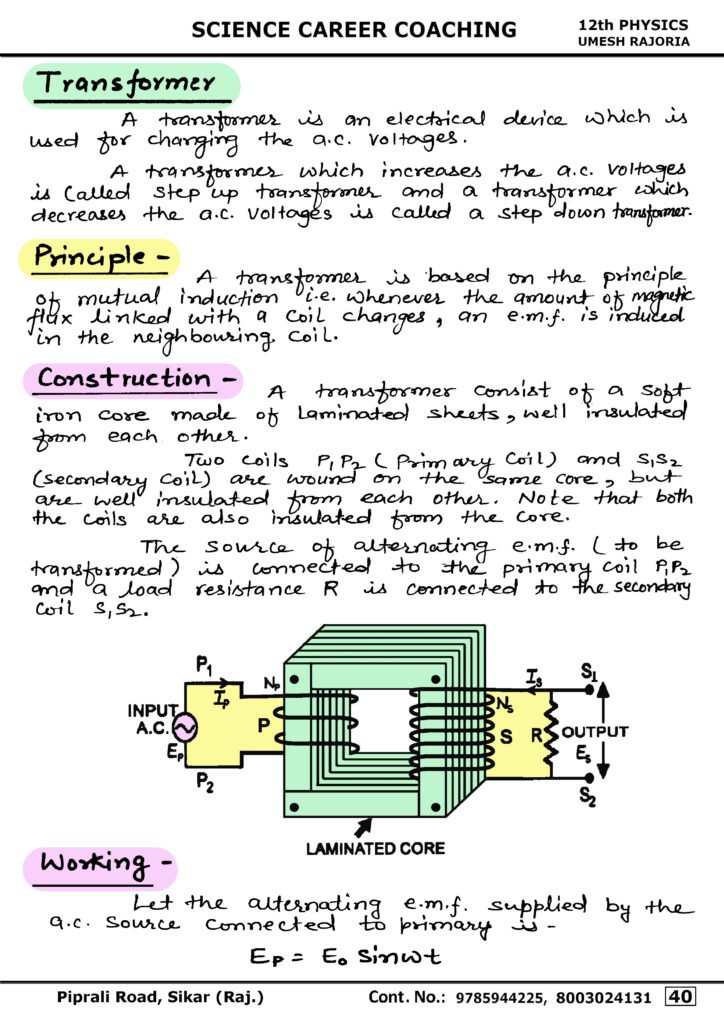 SCIENCE CAREER COACHING
12th PHYSICS
UMESH RAJORIA
Transformer
A transformer is an electrical device which is
used for changing the a.c. voltages.
A transformer which increases the a.c. voltages
is Called step up transformer and a transformer which
decreases the a.c. voltages is called a step down transformer.
Principle -
A transformer is based on the principle
of mutual induction i.e. whenever the amount of magnetic
flux linked with a coil changes, an e.m.f. is induced
in the neighbouring coil.
Construction -
A transformer consist of a soft
iron core made of laminated sheets, well insulated
from each other.
Two coils P₁P₂ (Primary Coil) and S₁S₂
(secondary Coil) are wound on the same core, but
are well insulated from each other. Note that both
the coils are also insulated from the core.
The source of alternating e.m.f. (to be
transformed) is connected to the primary coil P₁P₂
and a load resistance R is connected to the secondary
coil S₁S₂.
P₁
Iₚ
Nₚ
INPUT
A.C.
Eₚ
P
P₂
Iₛ
S₁
Nₛ
S
R
OUTPUT
Eₛ
S₂
LAMINATED CORE
Working -
Let the alternating e.m.f. supplied by the
a.c. source connected to primary is -
Eₚ = E₀ Sinωt
Piprali Road, Sikar (Raj.)
Cont. No.: 9785944225, 8003024131
40